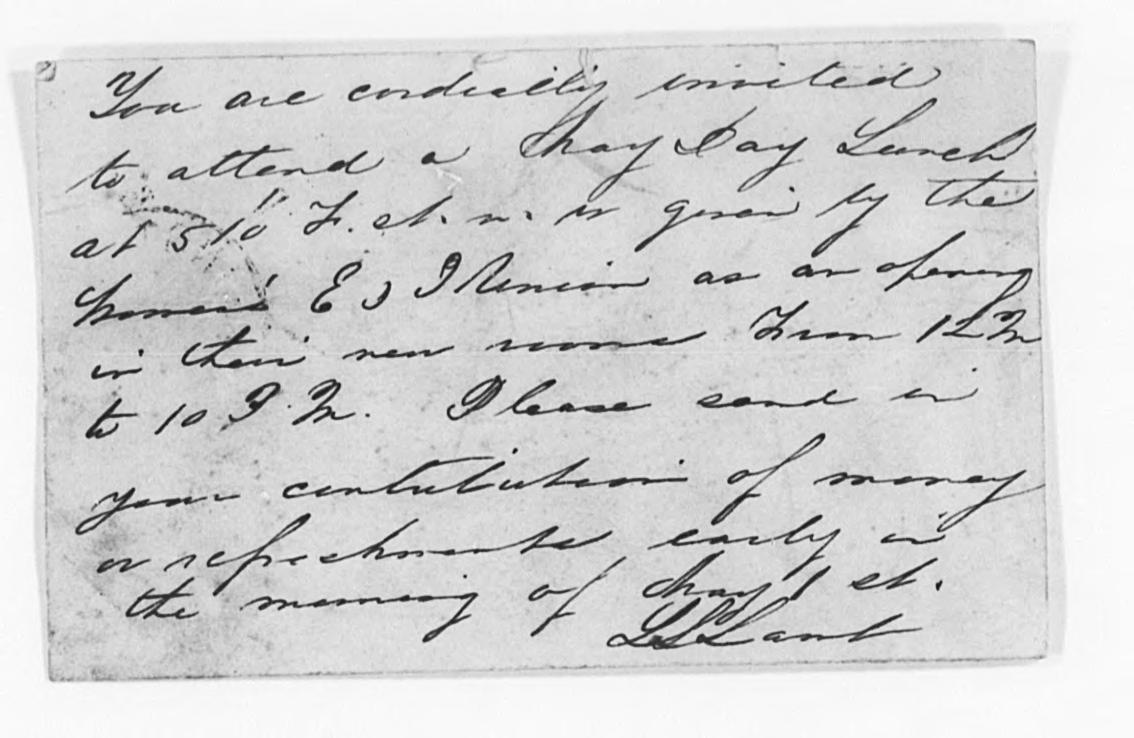 You are cordially invited
to attend a May Day Lunch
at 510 F. st. n. w given by the
Women's E & I Union as an opening
in their new rooms From 12 M
to 10 P. M. Please send in
your contribution of money
or refreshments early in
the morning of May 1 st.
L S Lamb